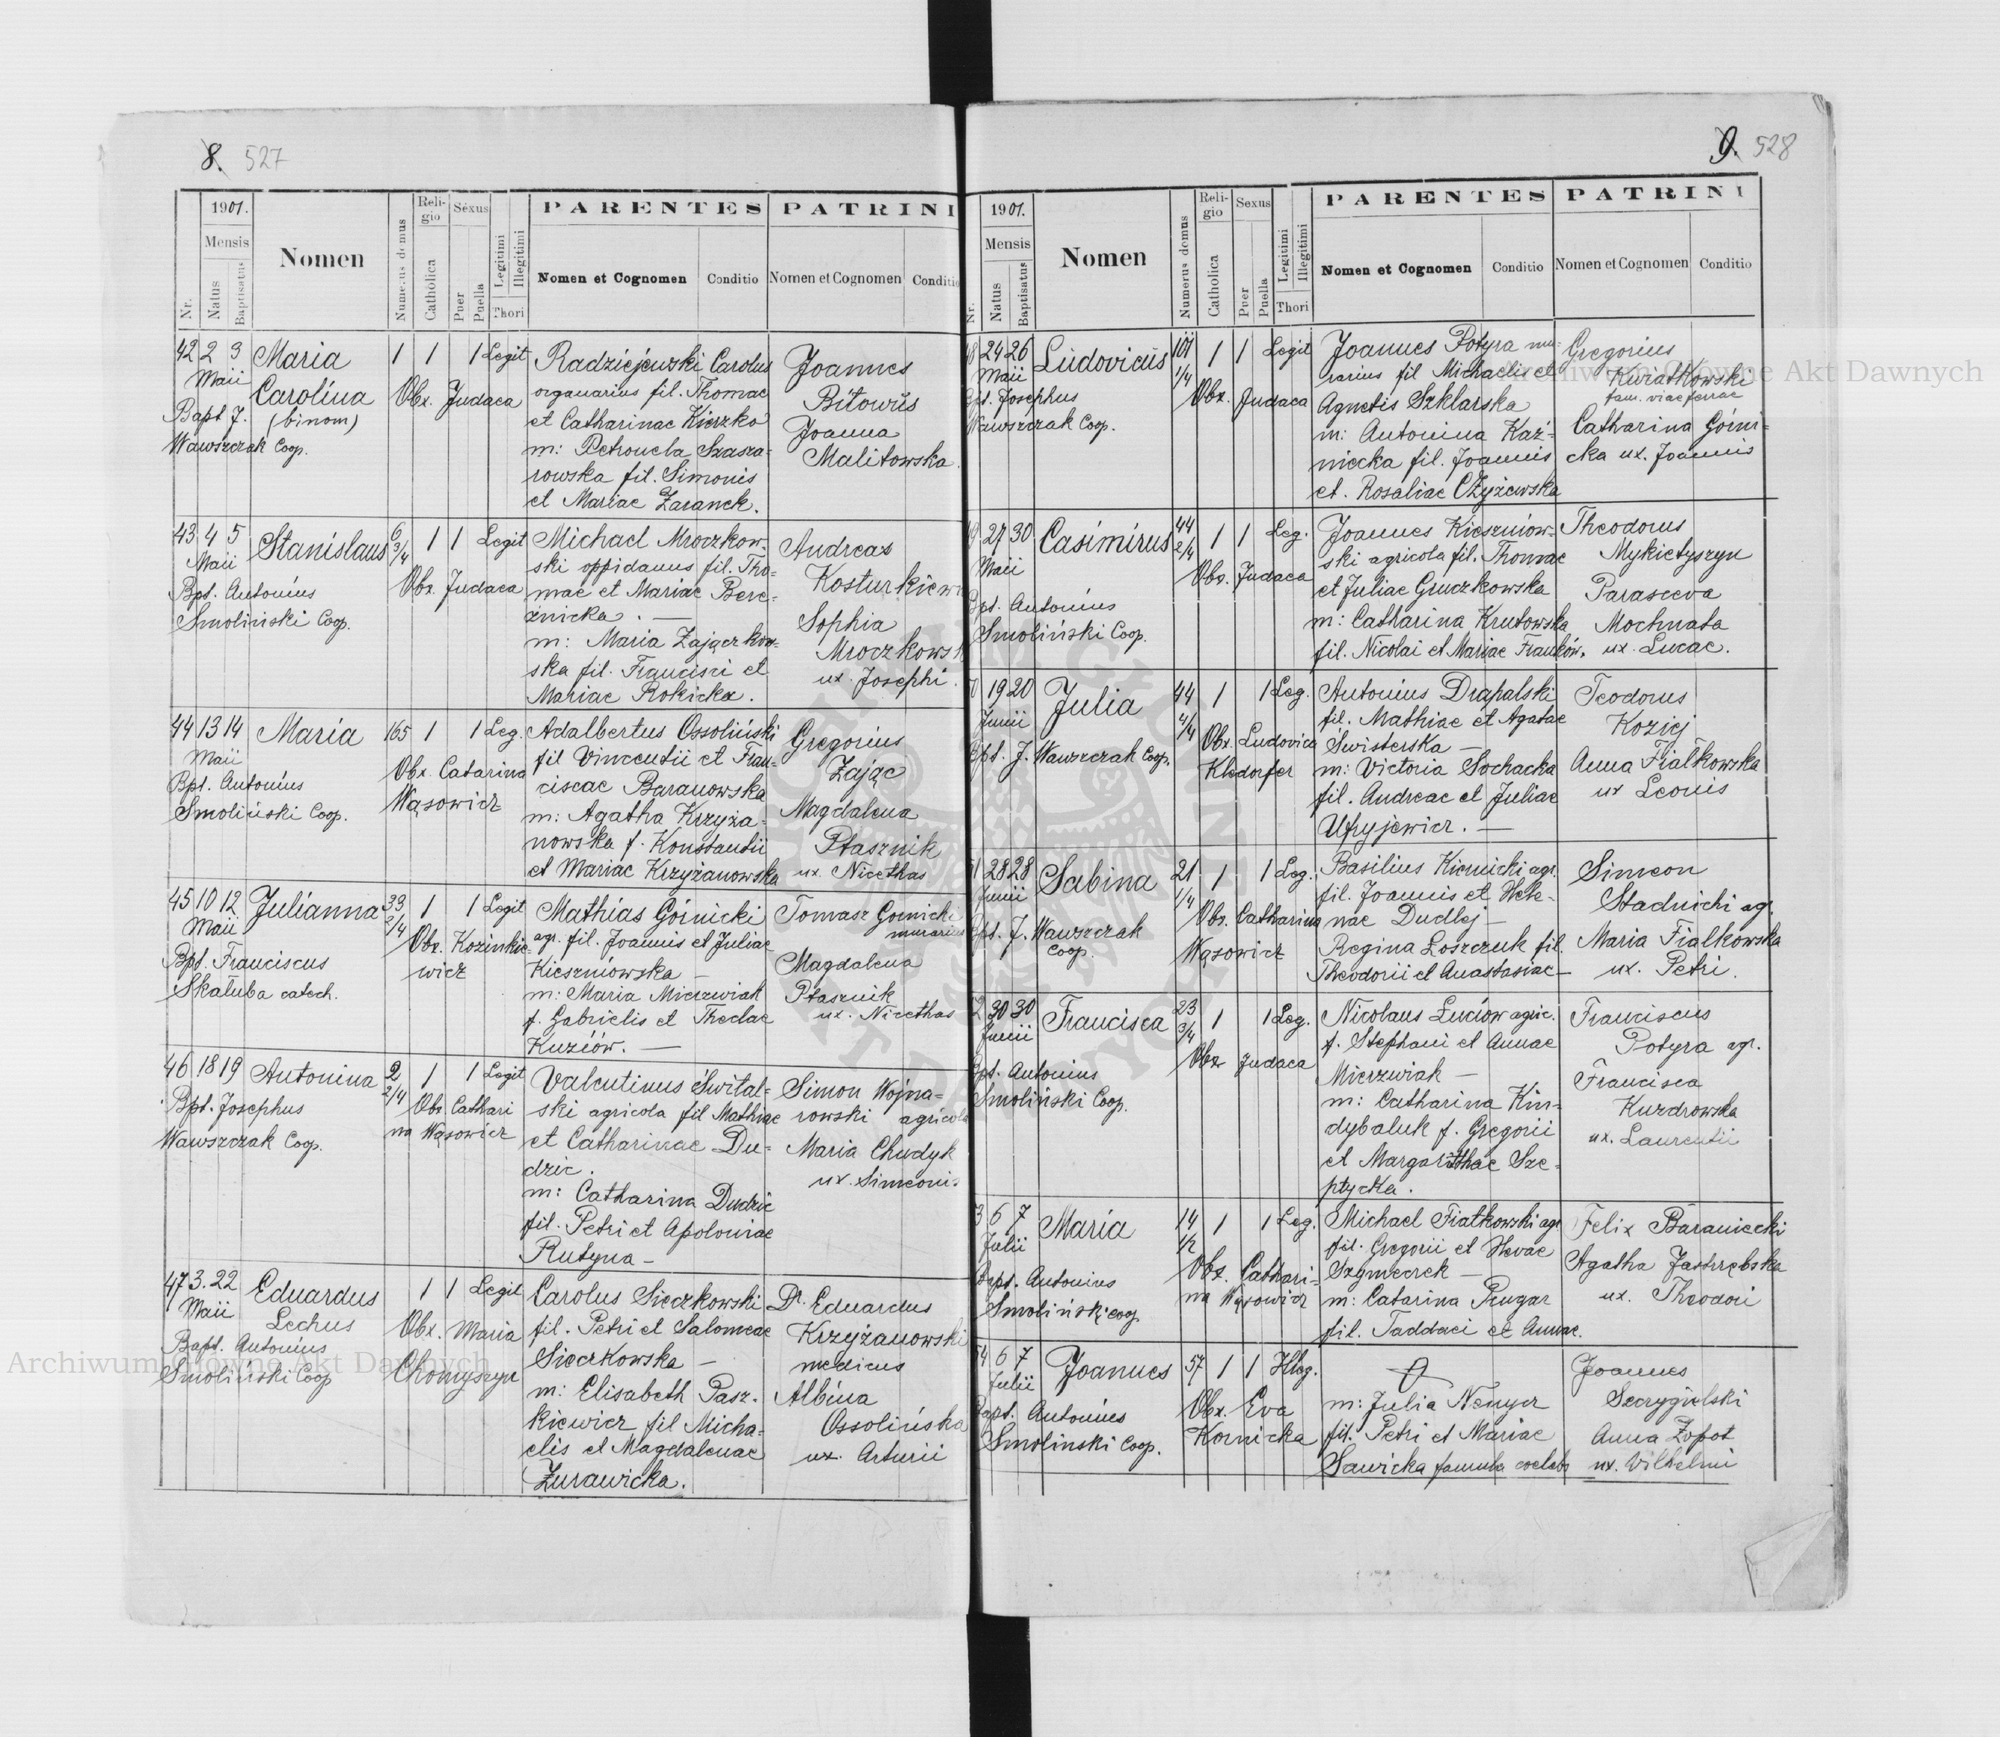 8. 527
1901.
Mensis
Nr.
Natus
Baptisatus
Nomen
Numerus domus
Religio
Catholica
Sexus
Puer
Puella
Legitimi
Illegitimi
Thori
PARENTES
Nomen et Cognomen
Conditio
PATRINI
Nomen et Cognomen
Conditio
42 2 3 Maria 1 1 1 Legit
Maii Carolina Obx. Judaca
Bapt J. (binom)
Wawszczak Coop.
Radziejewski Carolus
organarius fil. Thomae
et Catharinae Kierzko
m: Petronela Szasza-
rowska fil. Simonis
et Mariae Zaranek.
Joannes
Bitowŭs
Joanna
Malitowska.
43 4 5 Stanislaus 6 3/4 1 1 Legit
Maii Obx. Judaca
Bpt. Antonius
Smoliński Coop.
Michael Mroczkow-
ski oppidanus fil. Tho-
mae et Mariae Bere-
źnicka. —
m: Maria Zajączkow-
ska fil. Francisci et
Mariae Rokicka.
Andreas
Kosturkiew
Sophia
Mroczkowsk
ux. Josephi.
44 13 14 Maria 165 1 1 Leg.
Maii Obx. Catarina
Bpt. Antonius Wąsowicz
Smoliński Coop.
Adalbertus Ossoliński
fil Vincentii et Fran-
ciscae Baranowska
m: Agatha Krzyża-
nowska f. Konstantii
et Mariae Krzyżanowska
Gregorius
Zając
Magdalena
Ptasznik
ux. Nicethas
45 10 12 Julianna 33 2/4 1 1 Legit
Maii Obx. Kozinkie-
Bpt. Franciscus wicz
Skałuba catech.
Mathias Górnicki
agr. fil. Joannis et Juliae
Kieszniowska —
m: Maria Mierzwiak
f. Gabrielis et Theclae
Kuziów. —
Tomasz Górnicki
murarius
Magdalena
Ptasznik
ux. Nicethas
46 18 19 Antonina 2 2/4 1 1 Legit
Bpt. Josephus Obx Cathari
Wawszczak Coop. na Wąsowicz
Valentinus Śwital-
ski agricola fil Mathiae
et Catharinae Du-
dzic.
m: Catharina Dudzic
fil. Petri et Apoloniae
Rutyna —
Simon Wojna-
rowski agricola
Maria Chudyk
ux. Simeonis
47 3. 22 Eduardus 1 1 Legit
Maii Lechus Obx. Maria
Bapt. Antonius Chomyszyn
Smoliński Coop
Carolus Sieczkowski
fil. Petri et Salomeae
Sieczkowska —
m: Elisabeth Pasz-
kiewicz fil Micha-
elis et Magdalenae
Żurawicka.
Dr. Eduardus
Krzyżanowski
medicus
Albina
Ossolińska
ux. Arturii
9. 528
1901.
Mensis
Nr.
Natus
Baptisatus
Nomen
Numerus domus
Religio
Catholica
Sexus
Puer
Puella
Legitimi
Illegitimi
Thori
PARENTES
Nomen et Cognomen
Conditio
PATRINI
Nomen et Cognomen
Conditio
8 24 26 Ludovicus 101 1/4 1 1 Legit
Maii Obx. Judaca
Bpt. Josephus
Wawszczak Coop.
Joannes Potyra mu-
rarius fil Michaelis et
Agnetis Szklarska
m: Antonina Kaź-
niecka fil. Joannis
et. Rosaliae Czyżewska
Gregorius
Kwiatkowski
fam. viae ferrae
Catharina Górni-
cka ux. Joannis
9 27 30 Casimirus 44 2/4 1 1 Leg.
Maii Obx. Judaca
Bpt. Antonius
Smoliński Coop.
Joannes Kieszniow-
ski agricola fil. Thomae
et Juliae Gruczkowska
m: Catharina Krutowska
fil. Nicolai et Mariae Franków.
Theodorus
Mykietyszyn
Parasceva
Mochnata
ux. Lucae.
0 19 20 Julia 44 4/4 1 1 Leg.
Junii Obx. Ludovica
Bpt. J. Wawszczak Coop. Klodorfer
Antonius Drapalski
fil. Mathiae et Agatae
Świsterska —
m: Victoria Sochacka
fil. Andreae et Juliae
Ufryjewicz. —
Teodorus
Koziej
Anna Fiałkowska
ux Leonis
1 28 28 Sabina 21 1/4 1 1 Leg.
Junii Obx. Catharina
Bpt. J. Wawszczak Wąsowicz
Coop.
Basilius Kiernicki agr.
fil. Joannis et Hele-
nae Dudlej —
Regina Łoszczuk fil.
Theodorii et Anastasiae —
Simeon
Stadnicki agr.
Maria Fiałkowska
ux. Petri.
2 30 30 Francisca 23 3/4 1 1 Leg.
Junii Obx Judaca
Bpt. Antonius
Smoliński Coop.
Nicolaus Luciów agric.
f. Stephani et Annae
Mierzwiak —
m: Catharina Kin-
dybaluk f. Gregorii
et Margarithae Sze-
ptycka.
Franciscus
Potyra agr.
Francisca
Kuzdrowska
ux. Laurentii
3 6 7 Maria 14 1/2 1 1 Leg.
Julii Obx. Cathari-
Bapt. Antonius na Wąsowicz
Smoliński Coop
Michael Fiałkowski agr
fil. Gregorii et Hevae
Szymeczek —
m: Catarina Prugar
fil. Taddaei et Annae.
Felix Baraniecki
Agatha Jastrzębska
ux. Theodori
54 6 7 Joannes 57 1 1 Illeg.
Julii Obx. Eva
Bapt. Antonius Kornicka
Smolinski Coop.
m: Julia Nenycz
fil. Petri et Mariae
Sawicka famula coelebs
Joannes
Szczygielski
Anna Zopot
ux. Wilhelmi
Archiwum Główne Akt Dawnych
Archiwum Główne Akt Dawnych